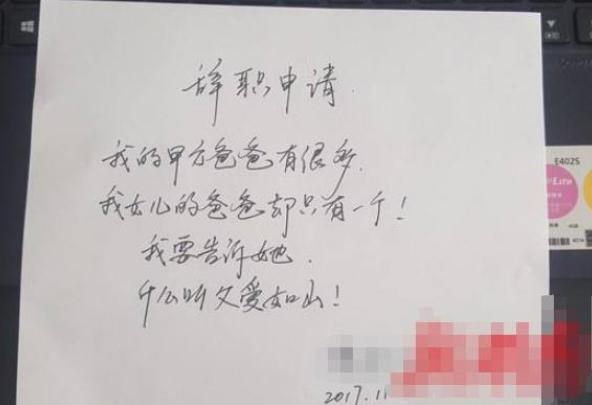 辞职申请
我的甲方爸爸有很多
我女儿的爸爸却只有一个！
我要告诉她
什么叫父爱如山！
2017.11
E402S
Lite